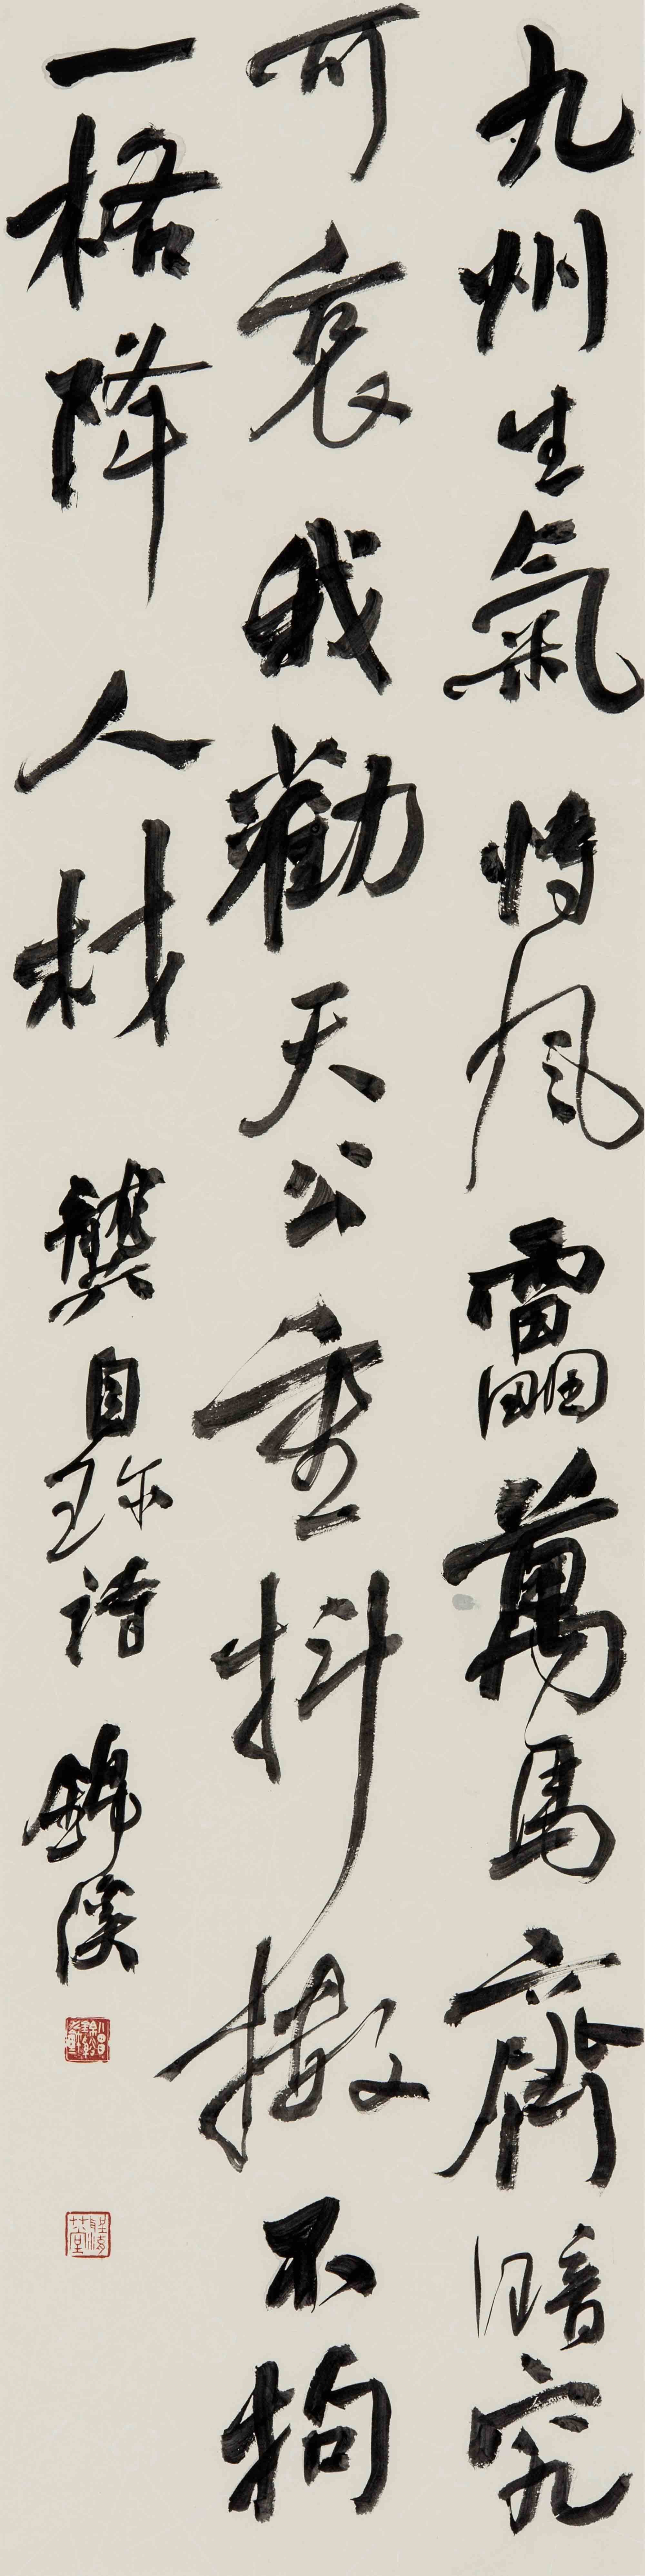 九州生氣恃風靁萬馬齊喑究
可哀我勸天公重抖擻不拘
一格降人材 龔自珎詩 錦溪